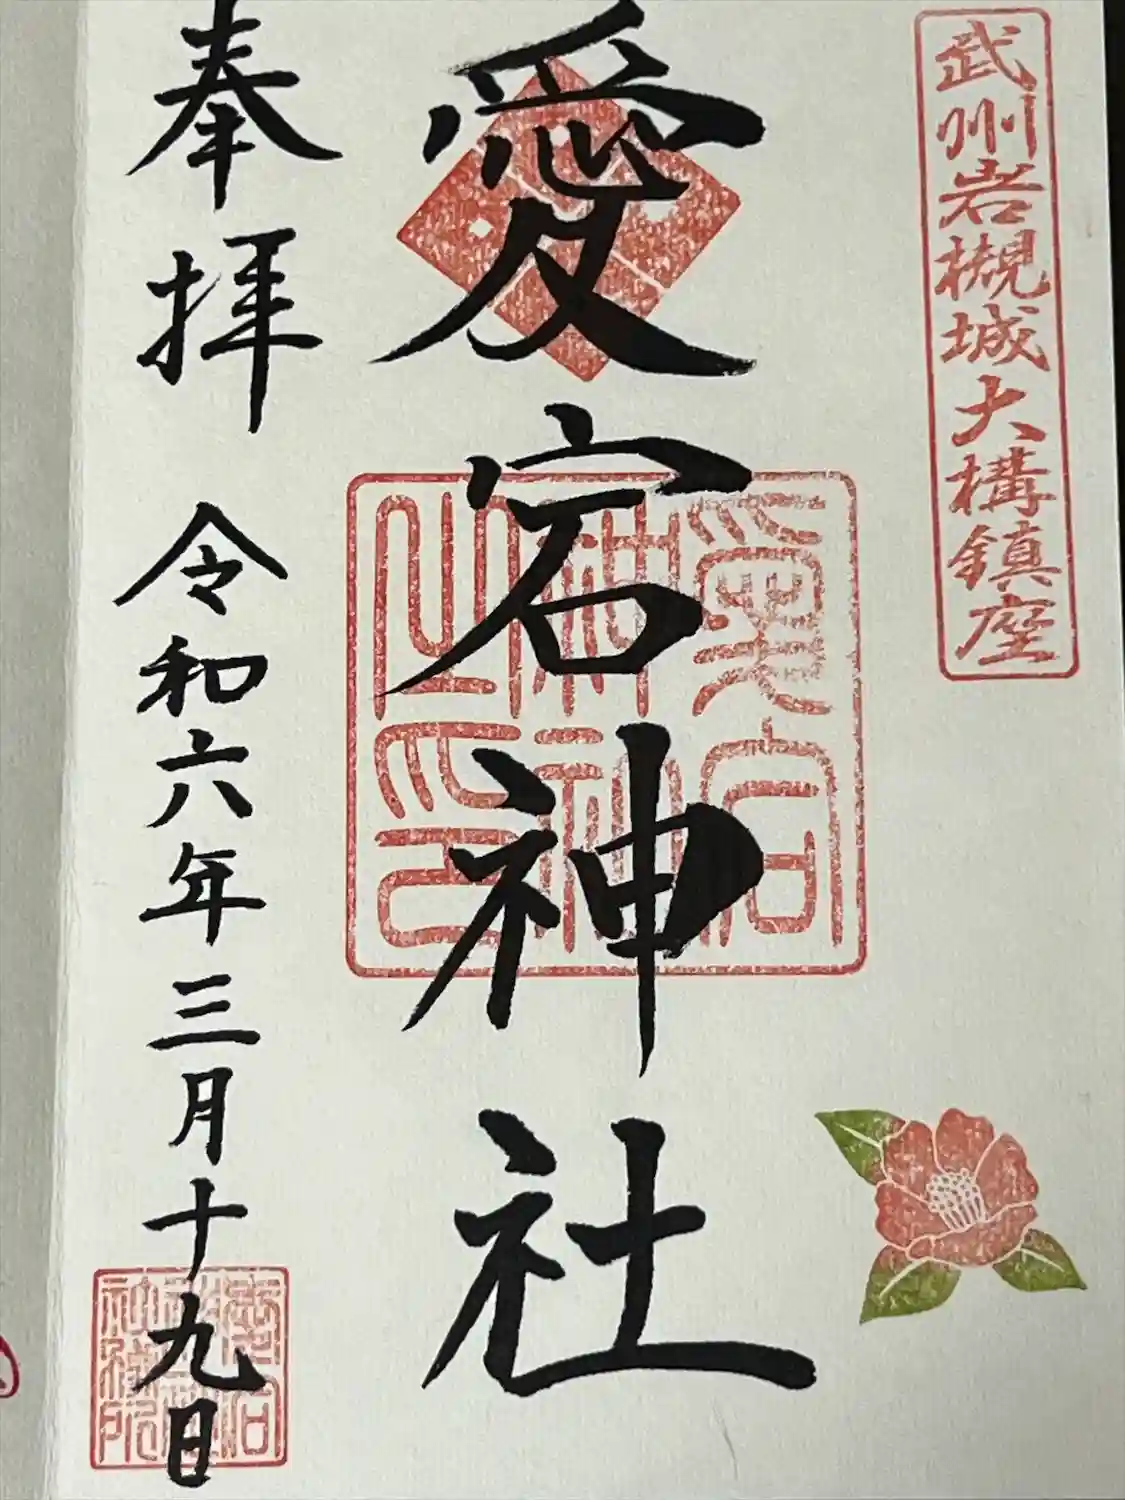 武州岩槻城大構鎮座
愛宕神社
愛宕神社之印
奉拝 令和六年三月十九日